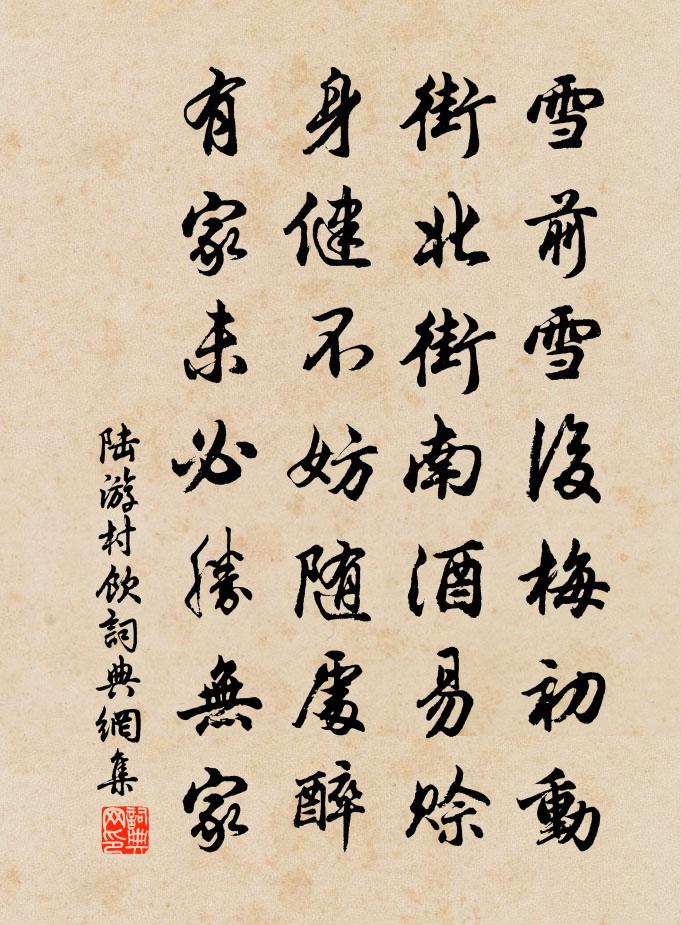 雪前雪後梅初動
街北街南酒易賒
身健不妨随處醉
有家未必勝無家
陆游村飲詞典網集
詞典网印